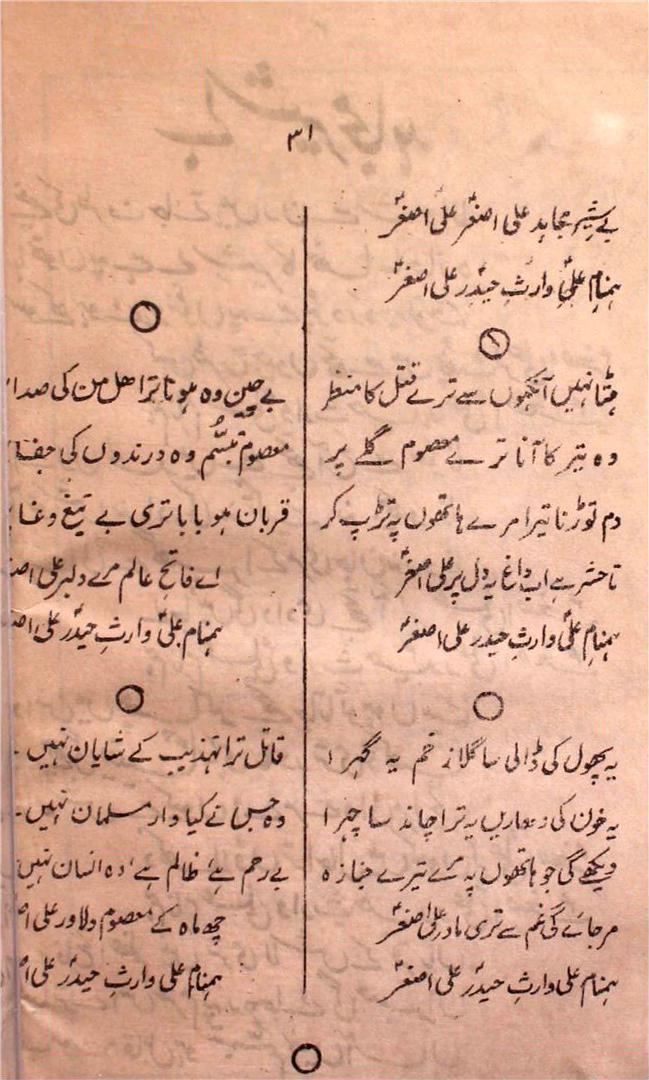 ۳۱
بے شیر مجاہد علی اصغرؑ علی اصغرؑ
ہمنام علیؑ وارثِ حیدرؑ علی اصغرؑ
ہٹتا نہیں آنکھوں سے ترے قتل کا منظر
وہ تیر کا آنا ترے معصوم گلے پر
دم توڑنا تیرا مرے ہاتھوں پہ تڑپ کر
تا حشر ہے اب داغ یہ دل پر علی اصغرؑ
ہمنام علیؑ وارثِ حیدر علی اصغرؑ
یہ پھول کی ڈالی سا گلا زخم یہ گہرا
یہ خون کی دھاریں یہ ترا چاند سا چہرا
دیکھے گی جو ہاتھوں پہ مرے تیرے جنازہ
مر جائے گی غم سے تری مادر علی اصغرؑ
ہمنام علی وارثِ حیدرؑ علی اصغرؑ
بے چین وہ ہونا ترا ھل من کی صدا
معصوم تبسّم وہ درندوں کی جفا
قربان ہو بابا تری بے تیغ وغا
اے فاتحِ عالم مرے دلبر علی
ہمنام علیؑ وارثِ حیدرؑ علی
قاتل ترا تہذیب کے شایان نہیں
وہ جس نے کیا وار مسلمان نہیں
بے رحم ہے ظالم ہے وہ انسان نہیں
چھ ماہ کے معصوم دلاور علی
ہمنام علی وارثِ حیدرؑ علی